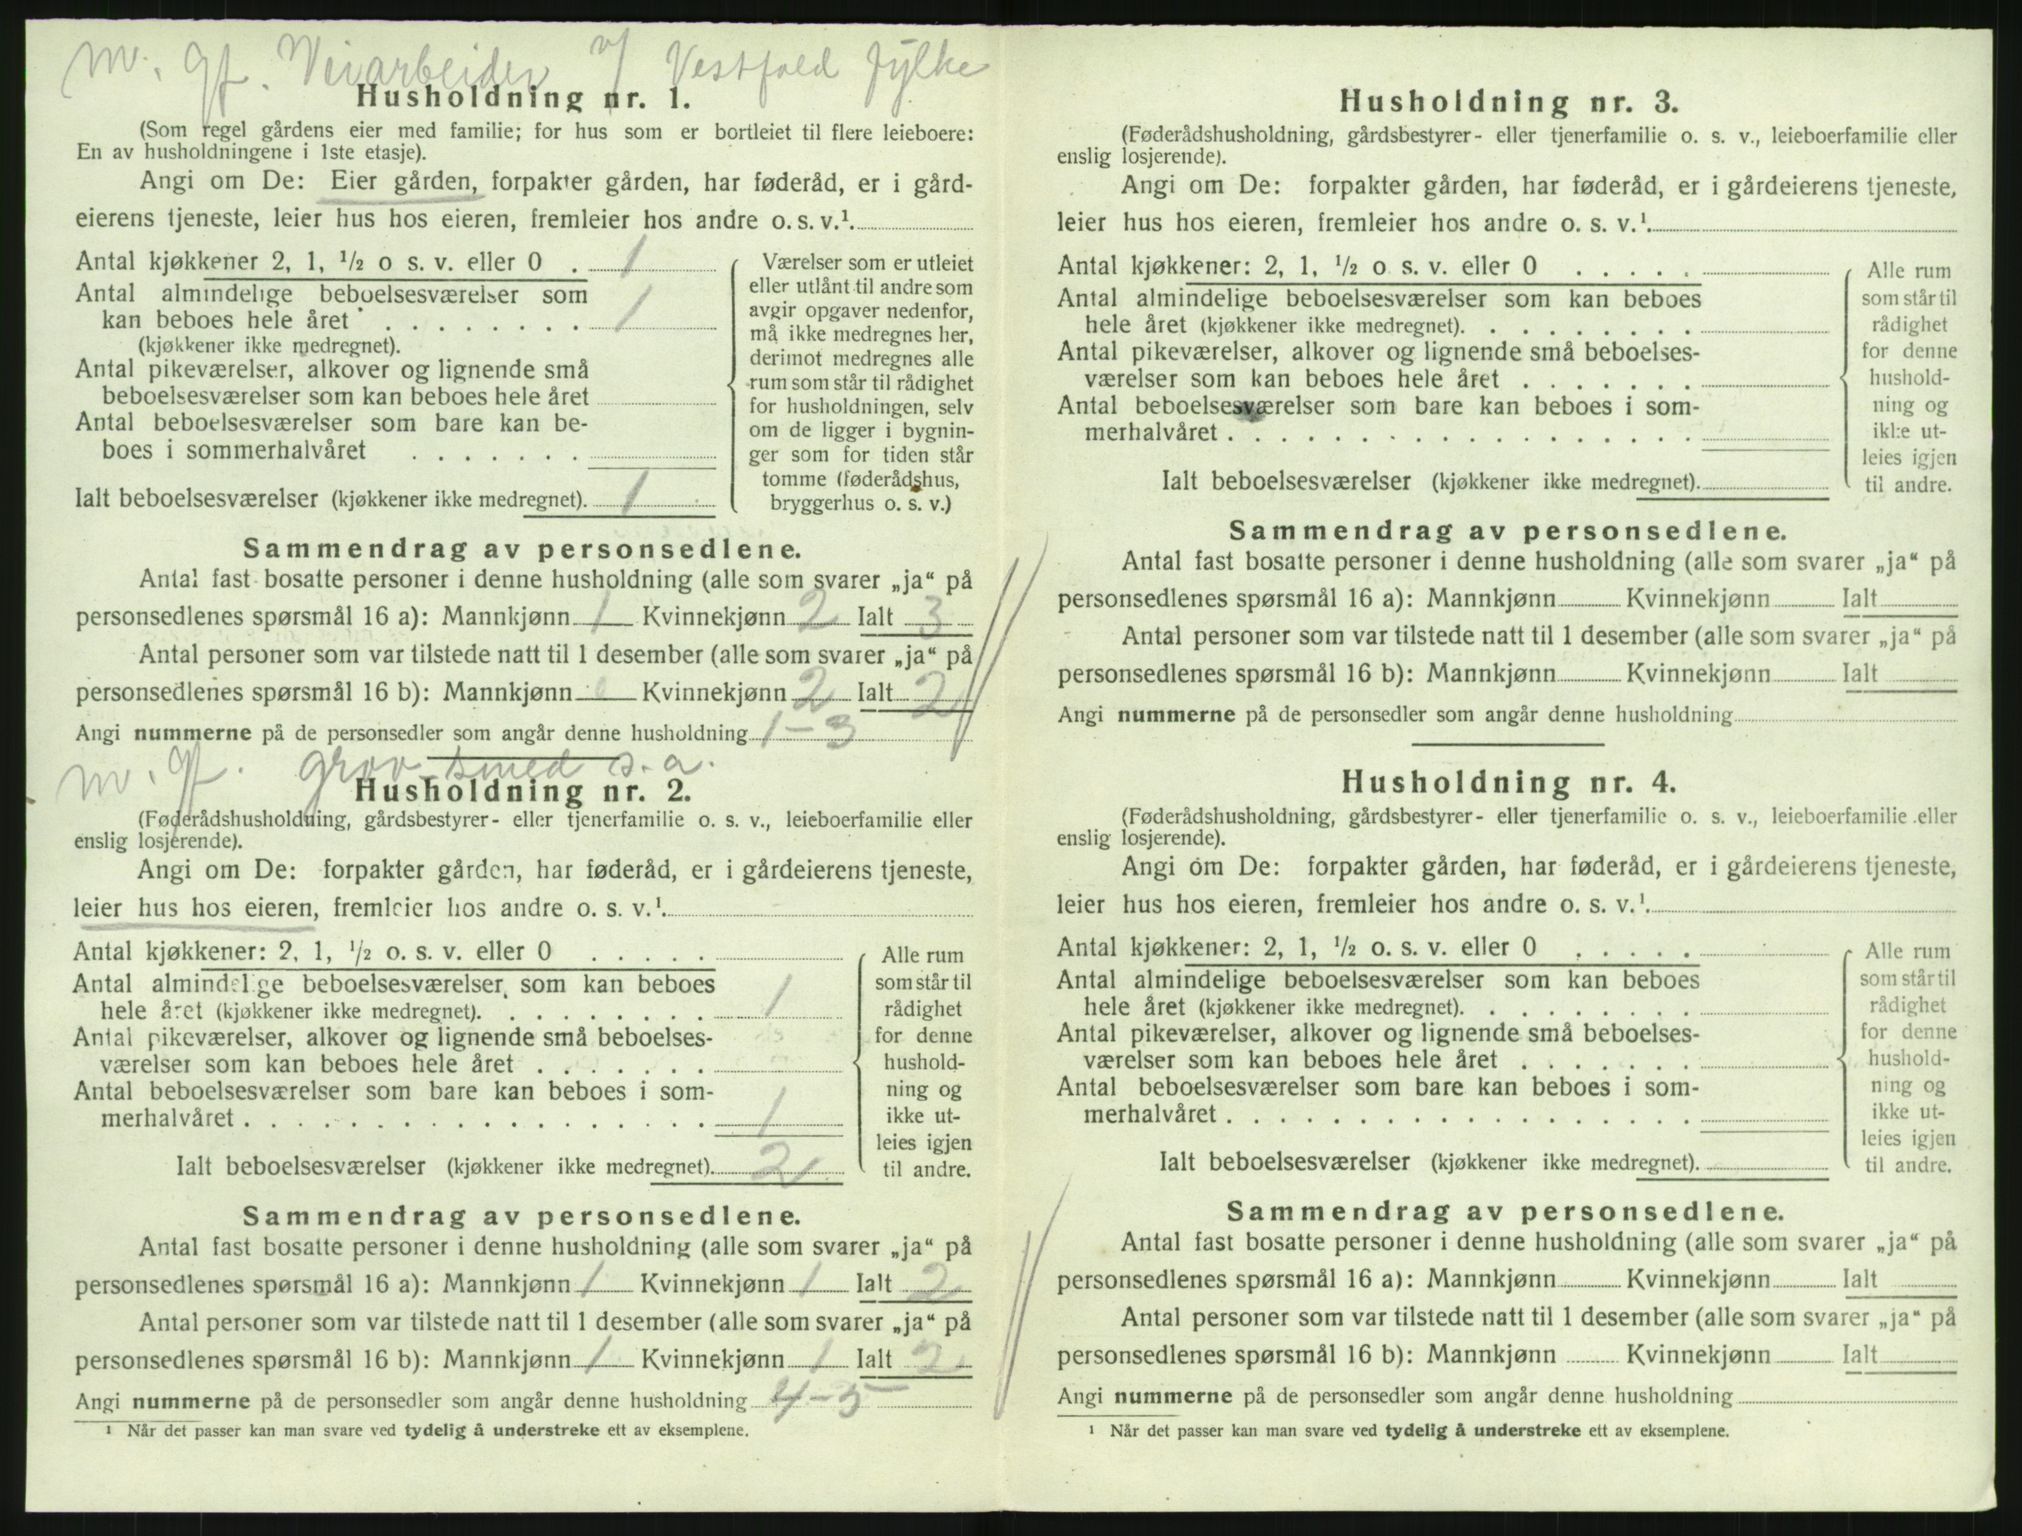 m. gf. Veiarbeider v/ Vestfold fylke
Husholdning nr. 1.
(Som regel gårdens eier med familie; for hus som er bortleiet til flere leieboere:
En av husholdningene i 1ste etasje).
Angi om De: Eier gården, forpakter gården, har føderåd, er i gård-
eierens tjeneste, leier hus hos eieren, fremleier hos andre o. s. v.¹.
Antal kjøkkener 2, 1, ½ o s. v. eller 0 . 1
Antal almindelige beboelsesværelser som
kan beboes hele året . . . . . . . . 1
(kjøkkener ikke medregnet).
Antal pikeværelser, alkover og lignende små
beboelsesværelser som kan beboes hele året
Antal beboelsesværelser som bare kan be-
boes i sommerhalvåret . . . . . . .
Ialt beboelsesværelser (kjøkkener ikke medregnet). 1
Værelser som er utleiet
eller utlånt til andre som
avgir opgaver nedenfor,
må ikke medregnes her,
derimot medregnes alle
rum som står til rådighet
for husholdningen, selv
om de ligger i bygnin-
ger som for tiden står
tomme (føderådshus,
bryggerhus o. s. v.)
Sammendrag av personsedlene.
Antal fast bosatte personer i denne husholdning (alle som svarer „ja“ på
personsedlenes spørsmål 16 a): Mannkjønn 1 Kvinnekjønn 2 Ialt 3
Antal personer som var tilstede natt til 1 desember (alle som svarer „ja“ på
personsedlenes spørsmål 16 b): Mannkjønn Kvinnekjønn 2 Ialt 2
Angi nummerne på de personsedler som angår denne husholdning 1-3
m. gf. grovsmed s.a.
Husholdning nr. 2.
(Føderådshusholdning, gårdsbestyrer- eller tjenerfamilie o. s. v., leieboerfamilie eller
enslig losjerende).
Angi om De: forpakter gården, har føderåd, er i gårdeierens tjeneste,
leier hus hos eieren, fremleier hos andre o. s. v.¹.
Antal kjøkkener: 2, 1, ½ o. s. v. eller 0 . . . . .
Antal almindelige beboelsesværelser som kan beboes
hele året (kjøkkener ikke medregnet). . . . . . . . . 1
Antal pikeværelser, alkover og lignende små beboelses-
værelser som kan beboes hele året . . . . . . .
Antal beboelsesværelser som bare kan beboes i som-
merhalvåret . . . . . . . . . . . . . . . . . . 1
Ialt beboelsesværelser (kjøkkener ikke medregnet). 2
Alle rum
som står til
rådighet
for denne
hushold-
ning og
ikke ut-
leies igjen
til andre.
Sammendrag av personsedlene.
Antal fast bosatte personer i denne husholdning (alle som svarer „ja“ på
personsedlenes spørsmål 16 a): Mannkjønn 1 Kvinnekjønn 1 Ialt 2
Antal personer som var tilstede natt til 1 desember (alle som svarer „ja“ på
personsedlenes spørsmål 16 b): Mannkjønn 1 Kvinnekjønn 1 Ialt 2
Angi nummerne på de personsedler som angår denne husholdning 4-5
¹ Når det passer kan man svare ved tydelig å understreke ett av eksemplene.
Husholdning nr. 3.
(Føderådshusholdning, gårdsbestyrer- eller tjenerfamilie o. s. v., leieboerfamilie eller
enslig losjerende).
Angi om De: forpakter gården, har føderåd, er i gårdeierens tjeneste,
leier hus hos eieren, fremleier hos andre o. s. v.¹.
Antal kjøkkener: 2, 1, ½ o s. v. eller 0 . . . . .
Antal almindelige beboelsesværelser som kan beboes
hele året (kjøkkener ikke medregnet). . . . . . . . .
Antal pikeværelser, alkover og lignende små beboelses-
værelser som kan beboes hele året . . . . . . .
Antal beboelsesværelser som bare kan beboes i som-
merhalvåret . . . . . . . . . . . . . . . . . .
Ialt beboelsesværelser (kjøkkener ikke medregnet).
Alle rum
som står til
rådighet
for denne
hushold-
ning og
ikke ut-
leies igjen
til andre.
Sammendrag av personsedlene.
Antal fast bosatte personer i denne husholdning (alle som svarer „ja“ på
personsedlenes spørsmål 16 a): Mannkjønn Kvinnekjønn Ialt
Antal personer som var tilstede natt til 1 desember (alle som svarer „ja“ på
personsedlenes spørsmål 16 b): Mannkjønn Kvinnekjønn Ialt
Angi nummerne på de personsedler som angår denne husholdning
Husholdning nr. 4.
(Føderådshusholdning, gårdsbestyrer- eller tjenerfamilie o. s. v., leieboerfamilie eller
enslig losjerende).
Angi om De: forpakter gården, har føderåd, er i gårdeierens tjeneste,
leier hus hos eieren, fremleier hos andre o. s. v.¹.
Antal kjøkkener: 2, 1, ½ o. s. v. eller 0 . . . . .
Antal almindelige beboelsesværelser som kan beboes
hele året (kjøkkener ikke medregnet). . . . . . . . .
Antal pikeværelser, alkover og lignende små beboelses-
værelser som kan beboes hele året . . . . . . .
Antal beboelsesværelser som bare kan beboes i som-
merhalvåret . . . . . . . . . . . . . . . . . .
Ialt beboelsesværelser (kjøkkener ikke medregnet).
Alle rum
som står til
rådighet
for denne
hushold-
ning og
ikke ut-
leies igjen
til andre.
Sammendrag av personsedlene.
Antal fast bosatte personer i denne husholdning (alle som svarer „ja“ på
personsedlenes spørsmål 16 a): Mannkjønn Kvinnekjønn Ialt
Antal personer som var tilstede natt til 1 desember (alle som svarer „ja“ på
personsedlenes spørsmål 16 b): Mannkjønn Kvinnekjønn Ialt
Angi nummerne på de personsedler som angår denne husholdning
¹ Når det passer kan man svare ved tydelig å understreke ett av eksemplene.